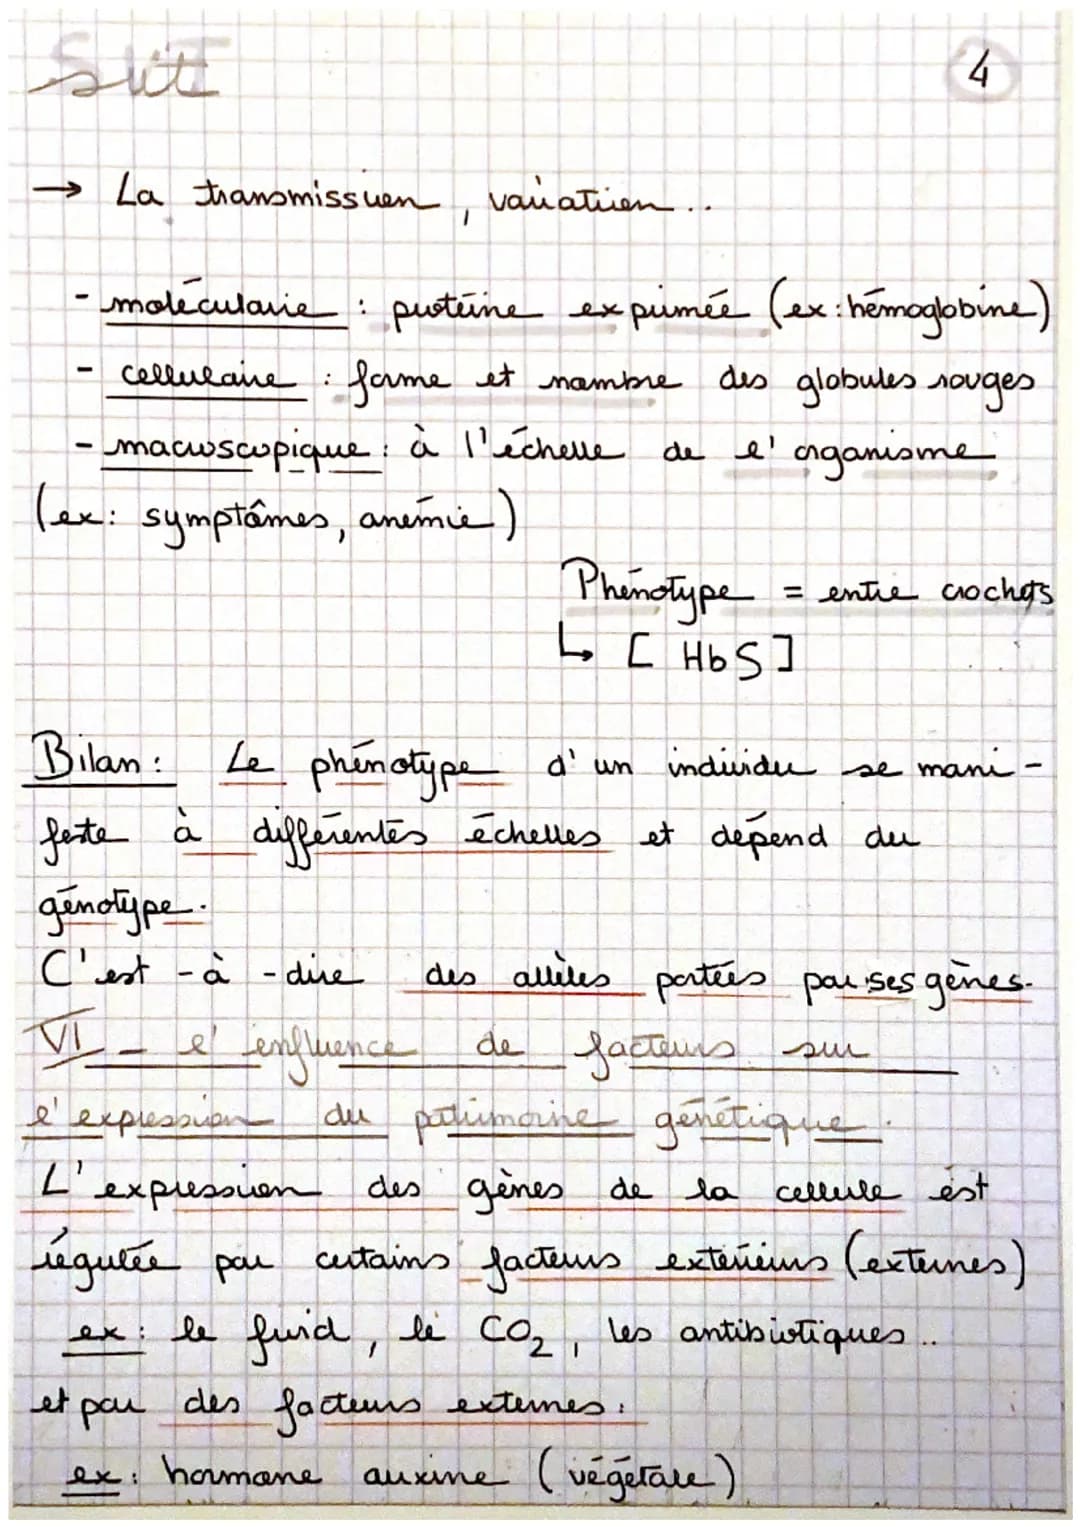 SVT
4
→ La transmission, variation..
- moléculaire : protéine exprimée (ex: hémoglobine)
- cellulaire : forme et nombre des globules rouges
- macroscopique : à l'échelle de l'organisme
(ex: symptômes, anémie)
Phénotype = entre crochets
↳ [ HbS ]
Bilan : Le phénotype d'un individu se mani-
feste à différentes échelles et dépend du
génotype.
C'est-à-dire des allèles portées par ses gènes.
VI - l'influence de facteurs sur
l'expression du patrimoine génétique.
L'expression des gènes de la cellule est
régulée par certains facteurs extérieurs (externes)
ex: le froid, le CO₂, les antibiotiques..
et par des facteurs externes :
ex: hormone auxine (végétale)